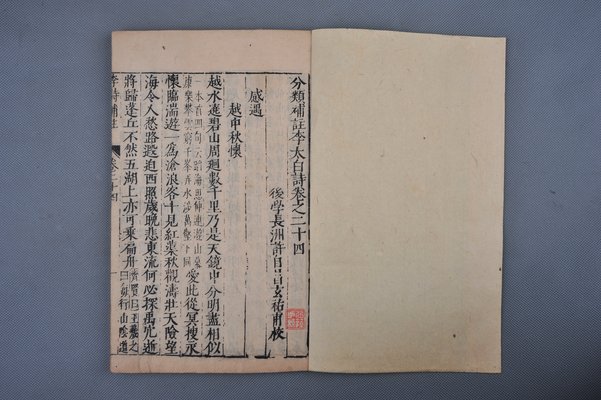 分類補註李太白詩卷之二十四
後學長洲許自昌玄祐甫校
感遇
越中秋懷
越水遶碧山周廻數千里乃是天鏡中分明畫相似
愛此從冥搜永
懷臨湍遊一為滄浪客十見紅蕖秋觀濤壯天險望
海令人愁路遐迫西照歲晚悲東流何必探禹穴逝
將歸蓬丘不然五湖上亦可乘扁舟
李詩補註 卷二十四